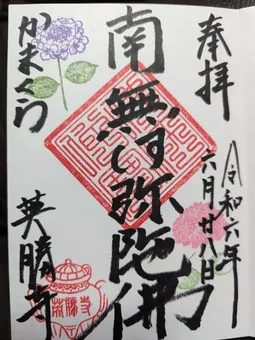 奉拝
令和六年
六月廿八日
南無阿弥陀佛
かまくら
英勝寺